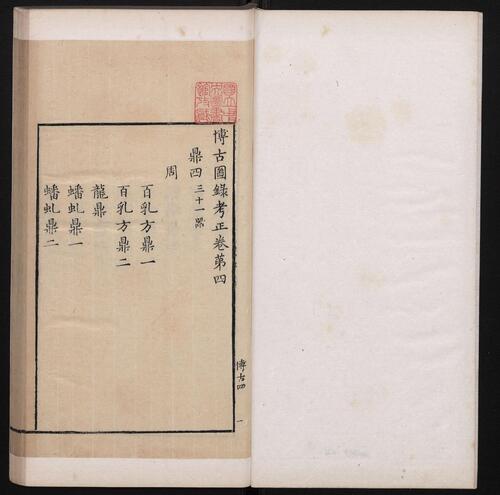 博古圖錄考正卷第四
鼎四三十一器
周
百乳方鼎一
百乳方鼎二
龍鼎
蟠虬鼎一
蟠虬鼎二
博古四
一